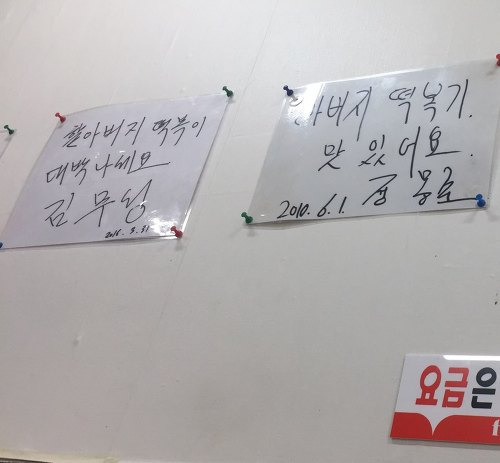 할아버지 떡볶이
대박나세요
김무성
2016. 3. 31
아버지 떡복기.
맛있어요.
2010. 6. 1. 정몽준
요금은
f